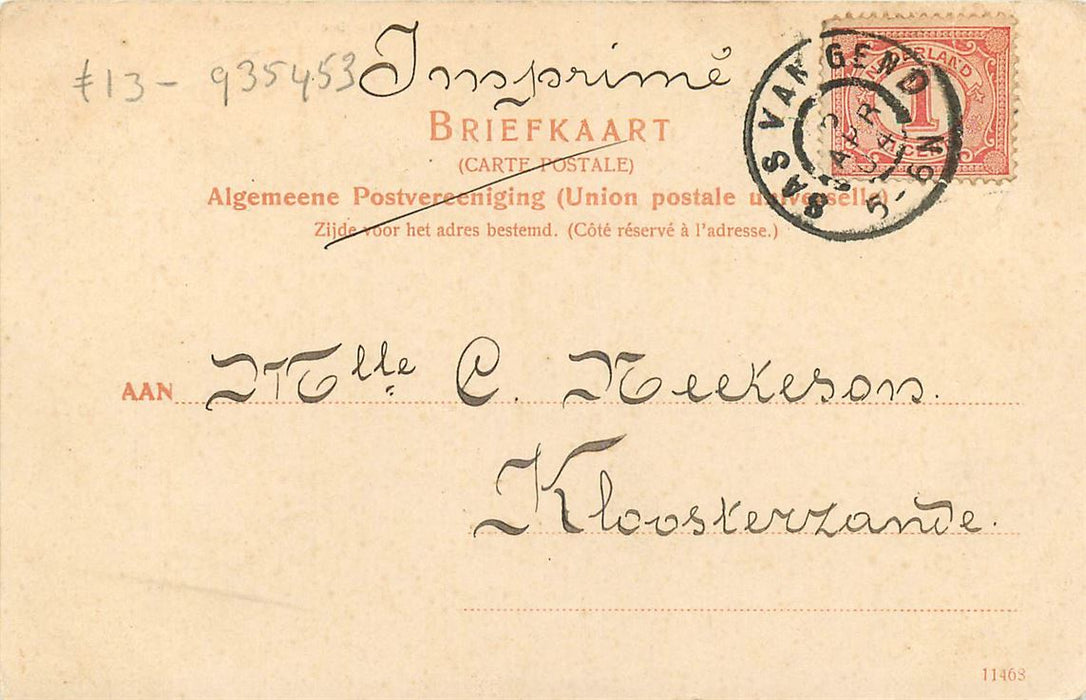 £13 - 935453
Imprimé
BRIEFKAART
(CARTE POSTALE)
Algemeene Postvereeniging (Union postale universelle)
Zijde voor het adres bestemd. (Côté réservé à l'adresse.)
SAS VAN GEND
APR
5-6N
1
AAN Mlle C. Neekeson.
Kloosterzande.
11468